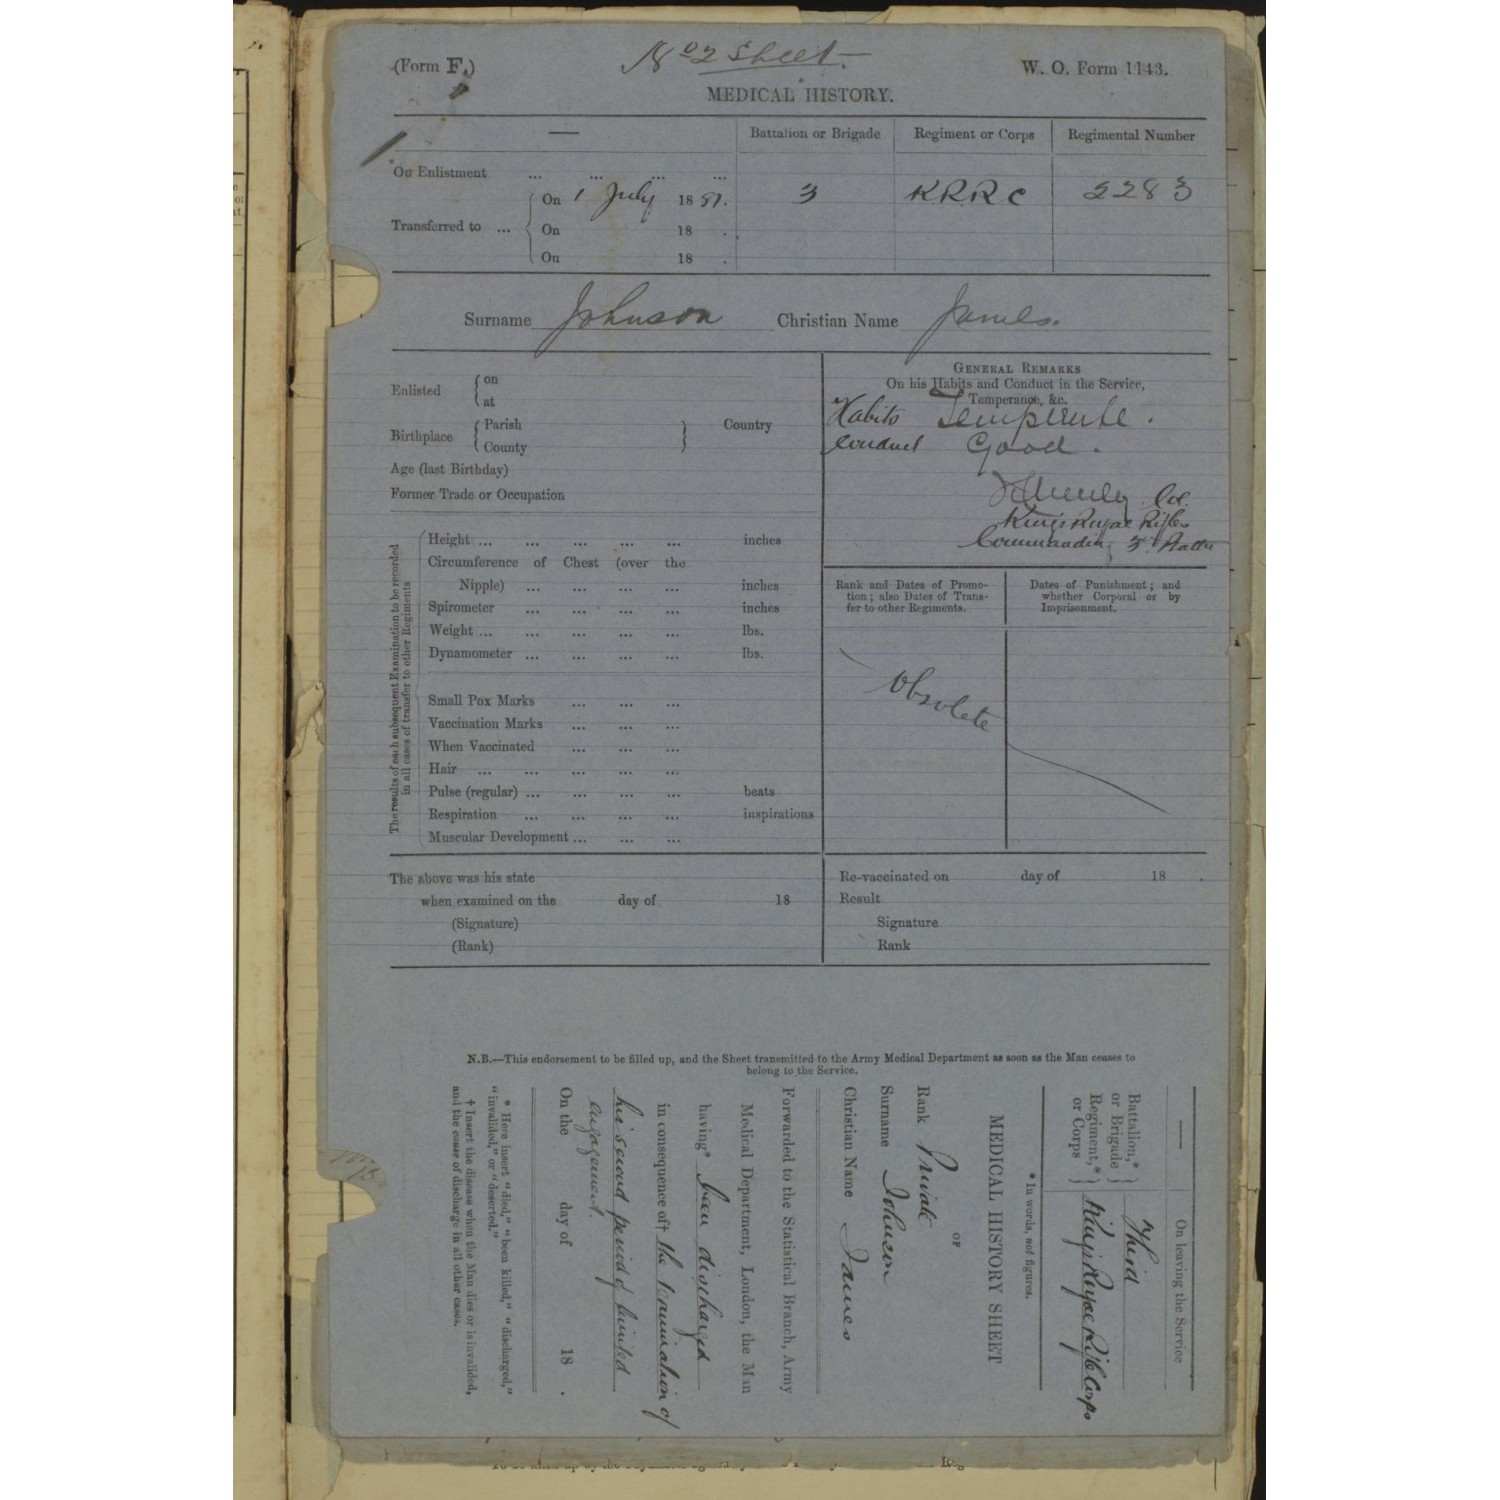 (Form F.)
No 2 Sheet.
W. O. Form 1143.
MEDICAL HISTORY.
Battalion or Brigade Regiment or Corps Regimental Number
On Enlistment ... ... ... ...
Transferred to ... On 1 July 1881. 3 KRRC 2283
On 18 .
On 18 .
Surname Johnson Christian Name James.
Enlisted on
at
Birthplace Parish Country
County
Age (last Birthday)
Former Trade or Occupation
The results of each subsequent Examination to be recorded
in all cases of transfer to other Regiments
Height ... ... ... ... ... inches
Circumference of Chest (over the
Nipple) ... ... ... ... inches
Spirometer ... ... ... ... inches
Weight ... ... ... ... ... lbs.
Dynamometer ... ... ... ... lbs.
Small Pox Marks ... ... ...
Vaccination Marks ... ... ...
When Vaccinated ... ... ...
Hair ... ... ... ... ...
Pulse (regular) ... ... ... ... beats
Respiration ... ... ... ... inspirations
Muscular Development ... ... ...
GENERAL REMARKS
On his Habits and Conduct in the Service,
Temperance, &c.
Habits Temperate.
Conduct Good.
Col.
Kings Royal Rifles
Commanding 3 Battn
Rank and Dates of Promo-
tion; also Dates of Trans-
fer to other Regiments.
Dates of Punishment; and
whether Corporal or by
Imprisonment.
Obsolete
The above was his state
when examined on the day of 18
(Signature)
(Rank)
Re-vaccinated on day of 18 .
Result
Signature
Rank
N.B.—This endorsement to be filled up, and the Sheet transmitted to the Army Medical Department as soon as the Man ceases to
belong to the Service.
On leaving the Service
Battalion,*
or Brigade Third
Regiment,*
or Corps King's Royal Rifle Corps
* In words, not figures.
MEDICAL HISTORY SHEET
OF
Rank Private
Surname Johnson
Christian Name James
Forwarded to the Statistical Branch, Army
Medical Department, London, the Man
having* been discharged
in consequence of† the termination of
his second period of limited
engagement.
On the day of 18 .
* Here insert "died," "been killed," "discharged,"
"invalided," or "deserted."
† Insert the disease when the Man dies or is invalided,
and the cause of discharge in all other cases.